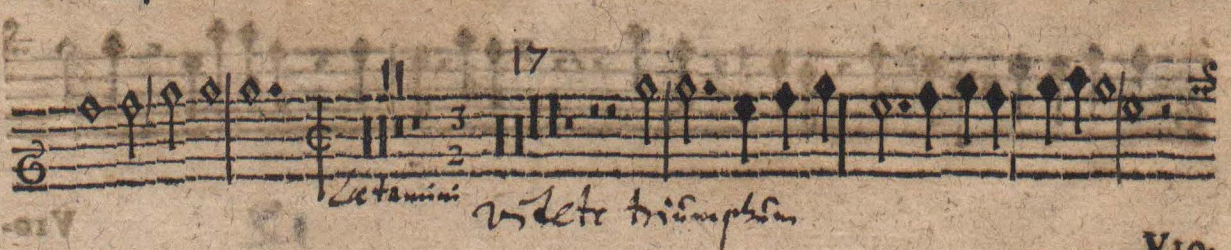 11 17
3
2
Lætamini
videte triumphum
VIO-